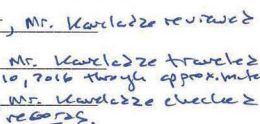 , Mr. Kaveladze reviewed
Mr. Kaveladze traveled
10, 2016 through approximate
Mr. Kaveladze checked
records.